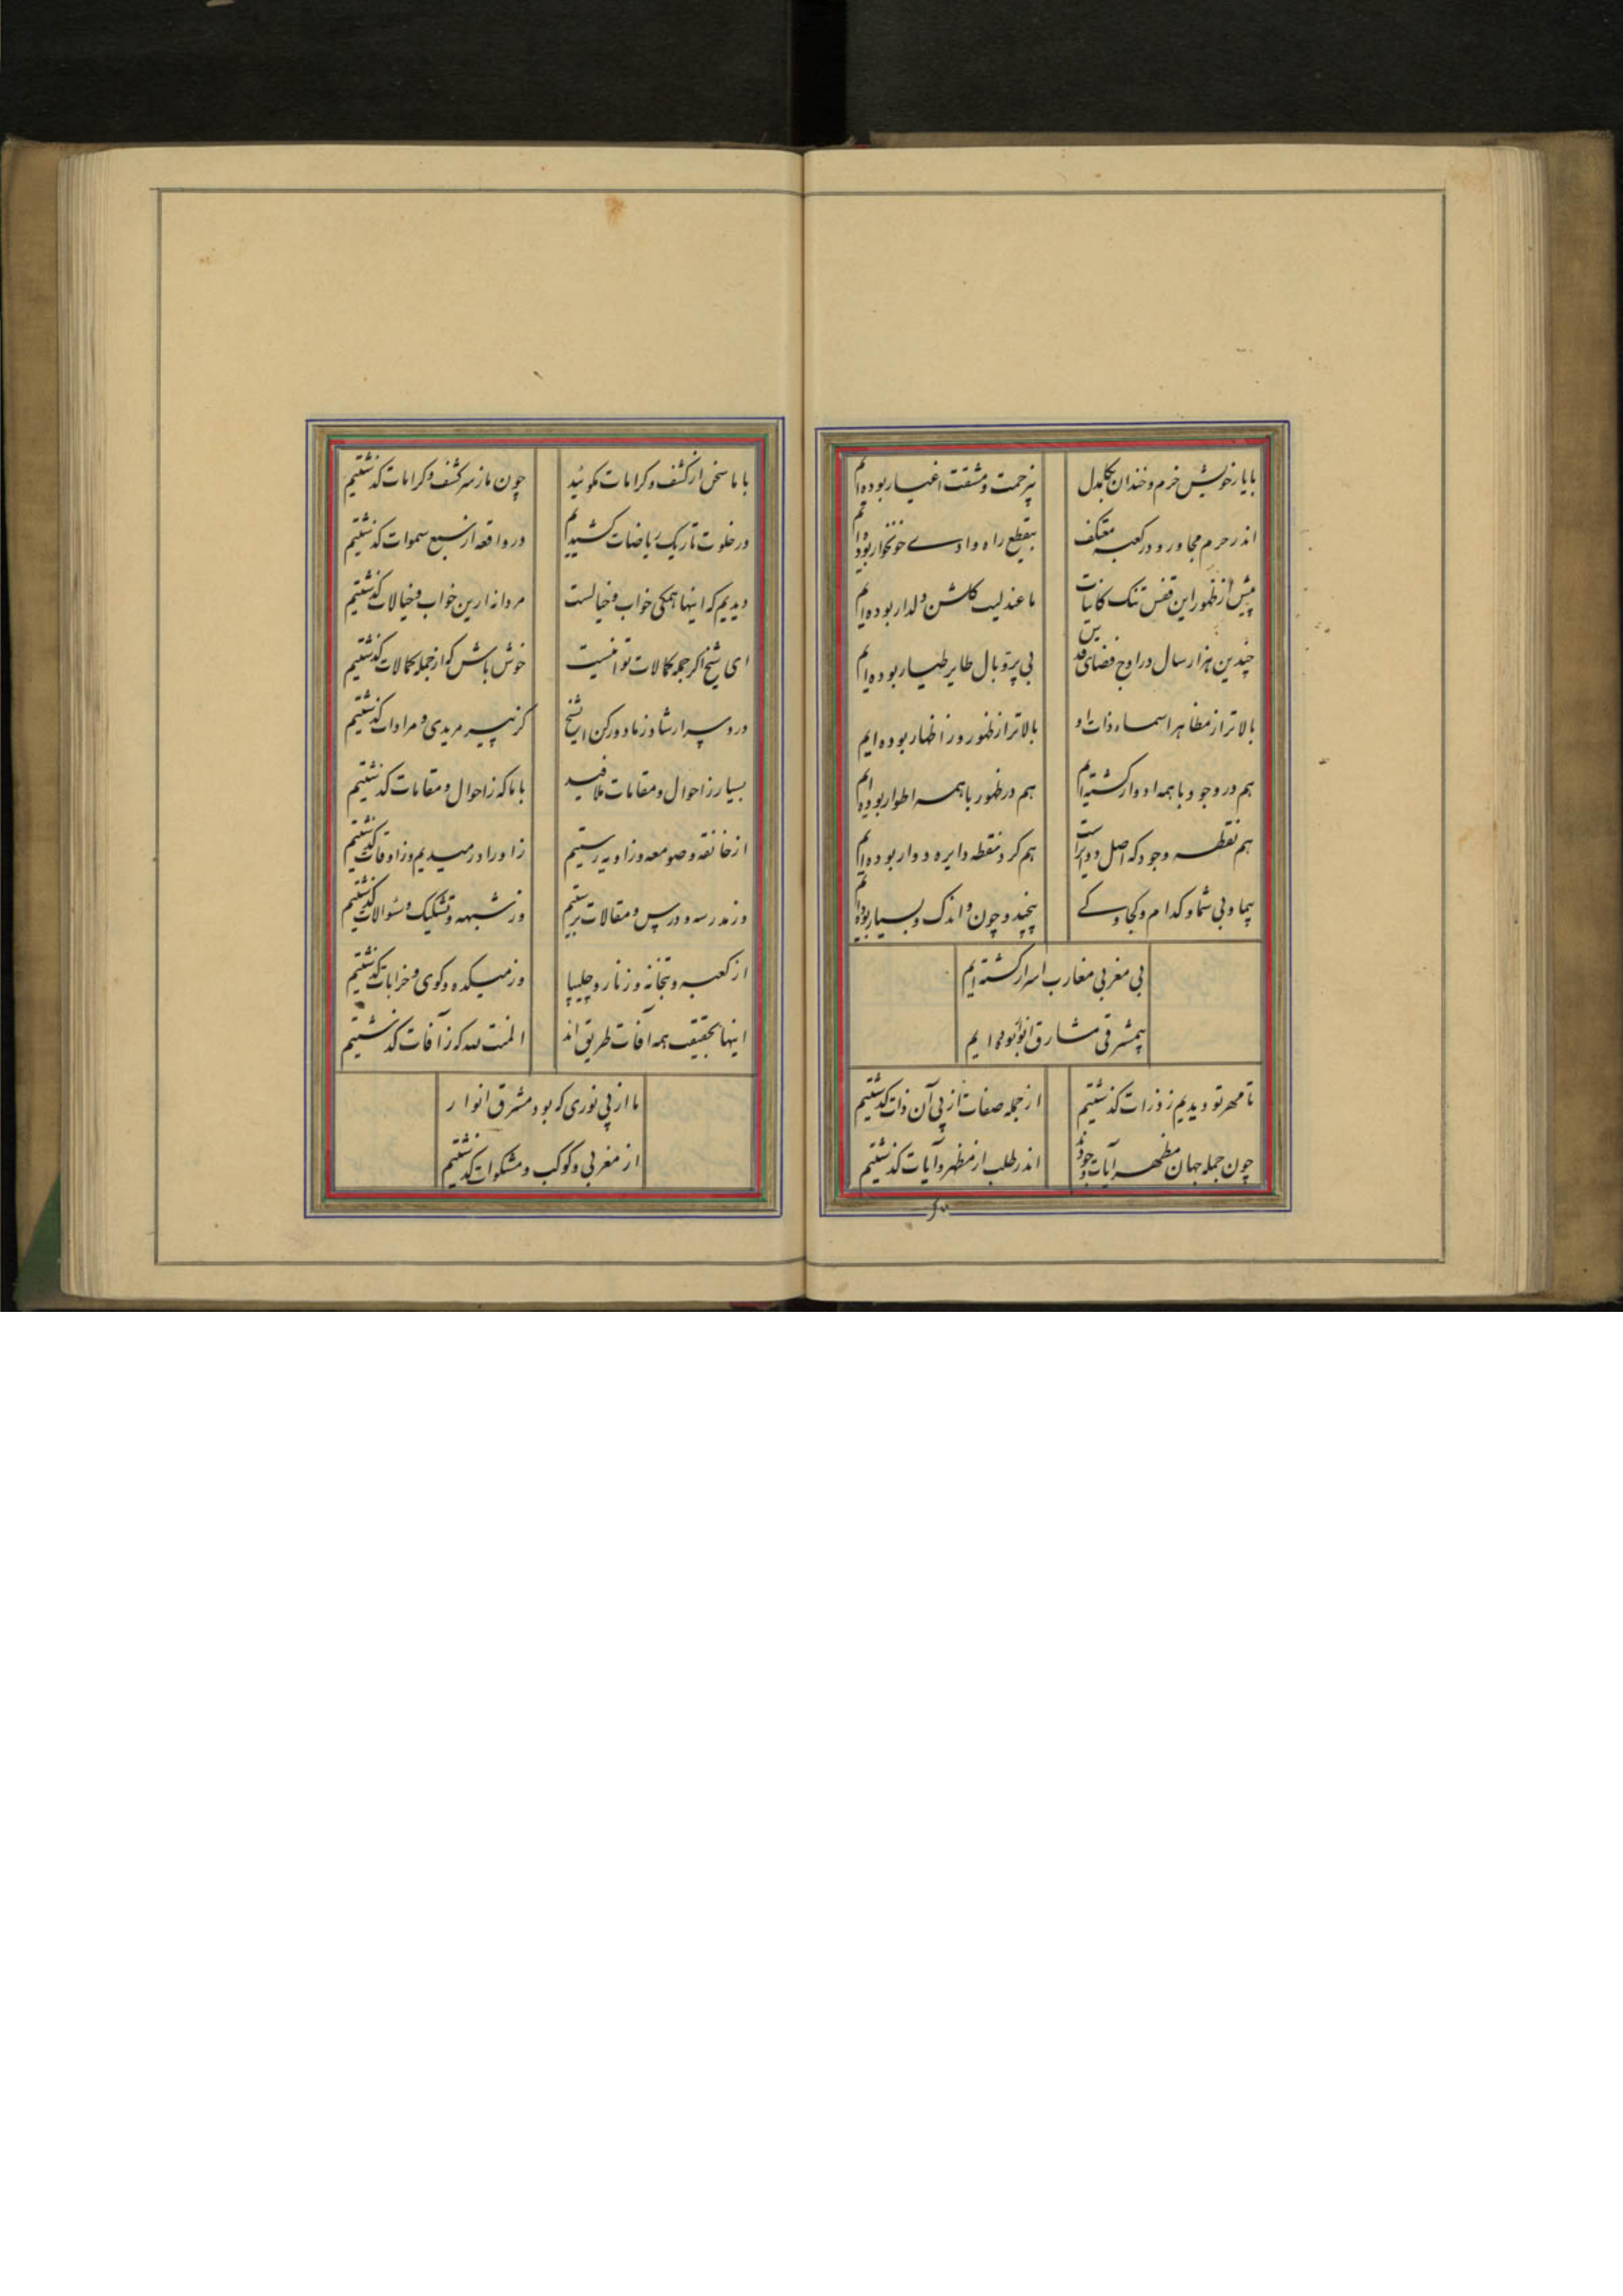 با یار خویش خرم و خندان بکام دل
بیزحمت و مشقت اغیار بوده‌ایم
اندر حرم مجاور و در کعبه معتکف
بیقطع راه وادی خونخوار بوده‌ایم
پیش از ظهور این قفس تنک کاینات
ما عندلیب کلشن دلدار بوده‌ایم
چندین هزار سال در اوج فضای قدس
بی پر و بال طایر طیار بوده‌ایم
بالاتر از مظاهر اسماء ذات او
بالاتر از ظهور وز اظهار بوده‌ایم
هم در وجود با همه ادوار کشته‌ایم
هم در ظهور با همه اطوار بوده‌ایم
هم نقطه وجود که اصل دوایر است
هم کرد نقطه دایره دوار بوده‌ایم
بیما و بی شما و کدام و کجا و کی
بیچند و چون و اندک و بسیار بوده‌ایم
بی مغربی مغارب اسرار کشته‌ایم
بیمشرقی مشارق انوار بوده‌ایم
تا مهر تو دیدیم ز ذرات کذشتیم
از جمله صفات از پی آن ذات کذشتیم
چون جمله جهان مظهر آیات وجودند
اندر طلب از مظهر و آیات کذشتیم
با ما سخن از کشف و کرامات مکوئید
چون ما ز سر کشف و کرامات کذشتیم
در خلوت تاریک ریاضات کشیدیم
در واقعه از سبع سموات کذشتیم
دیدیم که اینها همکی خواب و خیالست
مردانه ازین خواب و خیالات کذشتیم
ای شیخ اکر جمله کمالات تو اینست
خوش باش کز جمله کمالات کذشتیم
در و سر ارشاد ز ما دور کن ای شیخ
کز پیر و مریدی و مرادات کذشتیم
بسیار ز احوال و مقامات ملافید
با ما که ز احوال و مقامات کذشتیم
از خانقه و صومعه و زاویه رستیم
ز اوراد رمیدیم وز اوقات کذشتیم
وز مدرسه و درس و مقالات برستیم
وز شبهه و تشکیک و سئوالات کذشتیم
از کعبه و بتخانه و زنار و چلیپا
وز میکده و کوی خرابات کذشتیم
اینها بحقیقت همه آفات طریق‌اند
المنت لله که ز آفات کذشتیم
ما از پی نوری که بود مشرق انوار
از مغربی و کوکب و مشکوات کذشتیم